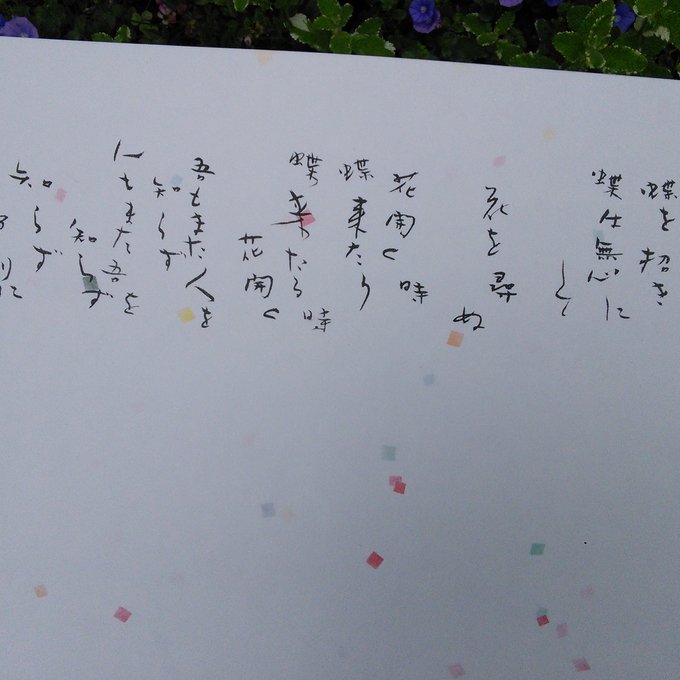 蝶を招き
蝶は無心に
して
花を尋
ぬ
花開く時
蝶来たり
蝶来たる時
花開く
吾もまた人を
知らず
人もまた吾を
知らず
知らず